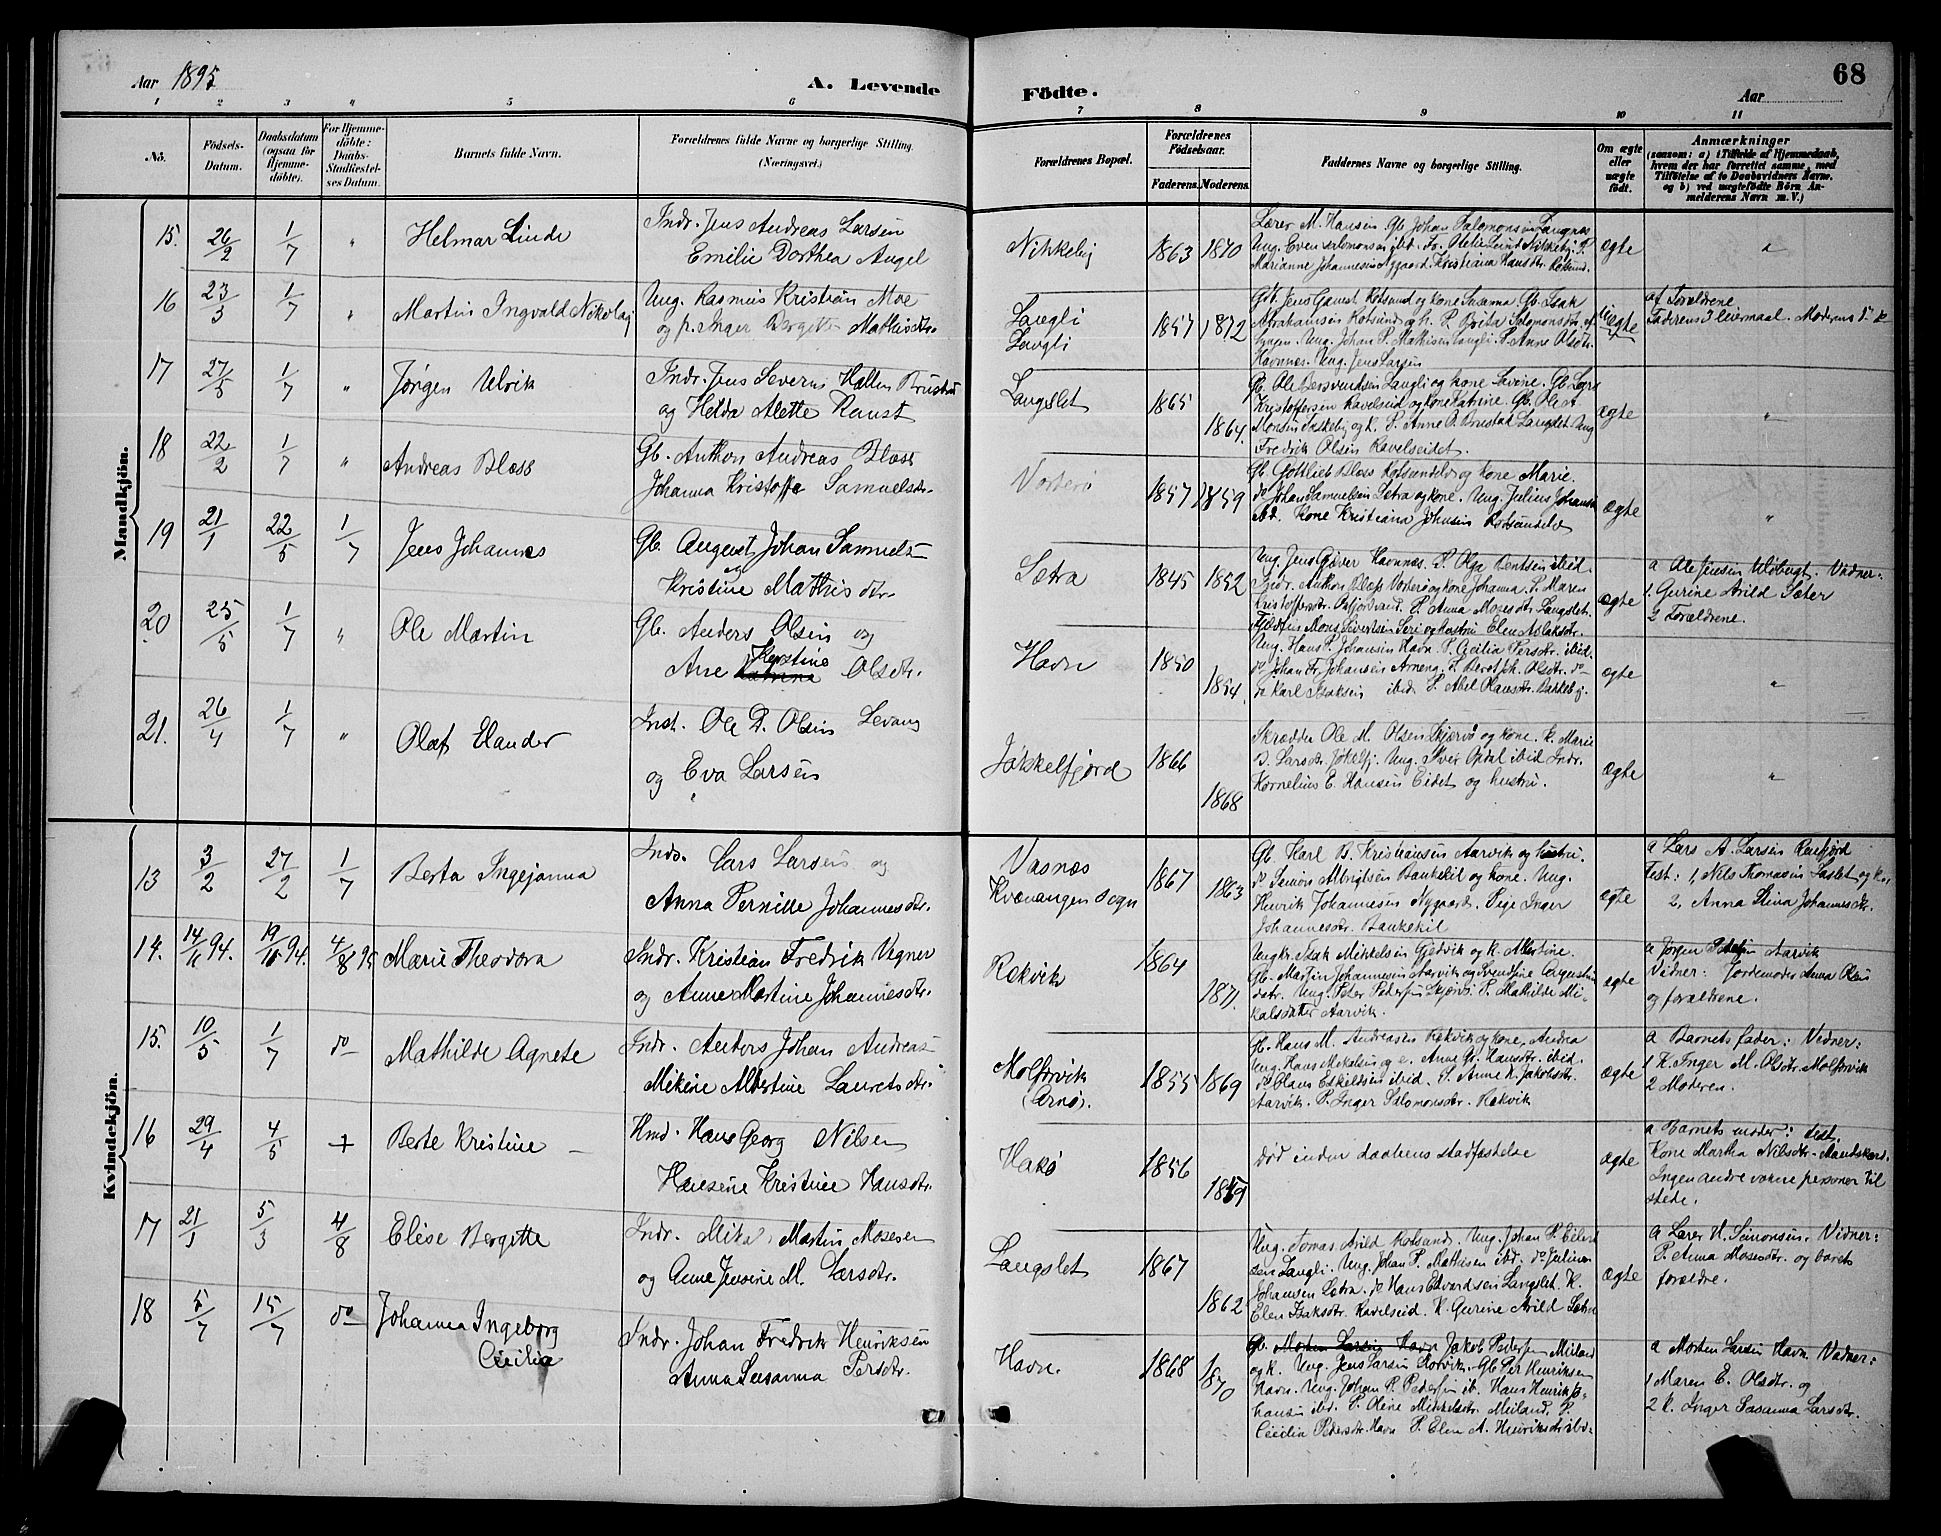 Aar 1895
A. Levende
Födte.
Aar
68
1 2 3 4 5 6 7 8 9 10 11
No.
Födsels-
Datum.
Daabsdatum
(ogsaa for
Hjemme-
döbte).
For Hjemme-
döbte:
Daabs-
Stadfæstel-
ses Datum.
Barnets fulde Navn.
Forældrenes fulde Navne og borgerlige Stilling.
(Næringsvei.)
Forældrenes Bopæl.
Forældrenes
Födselsaar.
Faderens. Moderens.
Faddernes Navne og borgerlige Stilling.
Om ægte
eller
uægte
födt.
Anmærkninger
(saasom: a) i Tilfælde af Hjemmedaab,
hvem der har forrettet samme, med
Tilföielse af to Daabsvidners Navne.
og b) ved uægtefödte Börn An-
melderens Navn m. V.)
Mandkjön.
15. 26/2 1/7 " Helmar Linde
Indr. Jens Andreas Larsen
Emilie Dorthea Angel
Nikkeby 1863 1870
Lærer M. Hansen Gb. Johan Salomonsen Langnes
Ung. Even Salomonsen ibid. Fr. Otelie Lund Nikkebj. P.
Marianne Johannesen Nygaard. Kristiana Hansdtr.
ægte "
16 23/3 1/7 " Martin Ingvald Nikolaj
Ung. Rasmus Kristian Moe
og p. Inger Bergitte Mathisdtr.
Langli
Langli
1857 1872
Gb. Jens Gamst Rotsund og kone Susanna Gb. Isak
Abrahamsen Rotsund og k. P. Brita Salomonsdtr.
Lyngen. Ung. Johan P. Mathisen Langli. P. Anne Olsdtr.
Havnnes. Ung. Jens Larsen
uægte
af Forældrene
Faderens 3 leiermaal. Moderens 1ste
17 27/5 1/7 " Jørgen Ulrik
Indr. Jens Severin Hatlen Brustad
og Helda Alette Kaust
Langslet 1865 1864.
Gb. Ole Bervendsen Langli og kone Severine. Gb. Lars
Kristoffersen Ravelseid og kone Katrine. Gb. Ole A
Monsen Takkebj og k. P. Anne O. Brustad Langslet Ung
Fredrik Olsen Ravelseidet.
ægte "
18 22/2 1/7 " Andreas Blæss
Gb. Anthon Andreas Blæss
Johanna Kristoffa Samuelsdr.
Vorterø 1857 1859
Gb. Gottlieb Blæss Rotsundelv og kone Marie.
do Johan Samuelsen Sætra og kone. Ung. Julius Johansen
ibd. Kone Kristiana Johnsen Rotsundelv
ægte "
19 21/1 22/5 1/7 Jens Johannes
Gb. August Johan Samuels-
og
Kristine Mathisdtr.
Sætra 1845 1852
Ung. Jens Giæver Havnnes. P. Olga Bentsen ibid
Indr. Anthon Blæss Vorterø og kone Johanna. P. Maren
Kristoffersdtr. P. Anna Mosesdtr Langslet.
ægte
a Ole Jensen Uløbugt. Vidner:
1 Gurine Arild Sæter
2 Forældrene.
20. 25/5 1/7 " Ole Martin
Gb. Anders Olsen og
Ane Katrine Kerstine Olsdtr.
Havn 1850 1854.
Mons Sivertsen Seri og hustru Elen Aslaksdtr.
Ung. Hans P. Johansen Havn. P. Cecilia Persdtr. ibid.
do Johan Fr. Johansen Arneng P. Beret Joh. Olsdtr. do
do Karl Isaksen ibid. P. Abel Olausdtr. Bakkebj.
ægte "
21. 26/4 1/7 " Olaf Elander
Inst. Ole D. Olsen Levang
og Eva Larsen
Jøkkelfjord 1866 1868
Skrædder Ole M. Olsen Skjervø og kone. K. Marie
B. Larsdtr. Jøkelfj. Ung. Iver Opdal ibid Indr.
Kornelius E. Hansen Eidet og hustru.
ægte "
Kvindekjön.
13 3/2 27/2 1/7 Berta Ingejanna
Indr. Lars Larsen og
Anna Pernille Johannesdtr.
Vasnæs
Kvænangen Sogn
1867 1863
Gb. Karl B. Kristiansen Aarvik og hustru.
do Simon Albrigtsen Bankekil og kone. Ung.
Henrik Johannesen Nygaard. Pige Inger
Johannesdtr. Bankekil
ægte
a Lars A. Larsen Reinfjord
Test: 1, Nils Thomasen Saslet og k.
2, Anna Stina Johannesdtr.
14. 14/11 94. 19/11 94. 4/8 95 Marie Theodora
Indr. Kristian Fredrik Vagner
og Anne Martine Johannesdtr.
Rekvik 1864 1871.
Ungk. Isak Mikkelsen Gjøvik og K. Albertine.
Gb. Martin Johannesen Aarvik og Svendfine Augustin
datr. Ung. Peter Pedersen Skjervø P. Mathilde Mi-
kalsdatter Aarvik.
ægte
a Jørgen Aarvik
Vidner: Jordemoder Anna Olsen
og forældrene.
15. 10/5 1/7 do Mathilde Agnete
Indr. Anders Johan Andreas-
Mikine Albertine Lauretsdtr.
Molforvik
(Arnø).
1855 1869
Gb. Hans M. Andreasen Rekvik og kone, Andrea
Ung. Hans Mikalsen og e. Anne Gr. Hansdtr. ibid.
do Olaus Eskildsen ibid. P. Anne K. Jakobsdtr.
Aarvik. P. Inger Salomonsdtr. Rekvik
ægte
a Barnets fader: Vidner:
1 K. Inger M. Olsdtr. Molforvik
2 Moderen.
16 29/4 4/5 + Berte Kristine –
Hmd. Hans Georg Nilsen
Hansine Kristine Hansdtr.
Hakø 1856 1859
død inden daabens stadfæstelse
ægte
a Barnets moder: Test.
Kone Martha Nilsdtr.
Ingen andre voxne personer til
stede.
17 21/1 5/3 4/8 Elise Bergitte
Indr. Mika Martin Mosesen
og Anne Jensine M. Larsdtr.
Langslet 1867 1862
Ung. Tomas Arild Rotsund. Ung. Johan P. Eilert
sen Langli. Ung. Johan P. Mathisen ibid. do Julius
Johansen Sætra. do Hans Edvardsen Langslet. K.
Elen Isaksdtr. Ravelseid. K. Gurine Arild Sætra
ægte
a Lærer H. Simonsen. Vidner:
P. Anna Mosesdtr. og barets
forældre.
18 5/7 15/7 do Johanna Ingeborg
Cecilia
Indr. Johan Fredrik Henriksen
Anna Susanna Persdtr.
Havn. 1868 1870
Gb. Morten Larsen Havn Jakob Pedersen Meiland
og k. Ung. Jens Larsen Rotvik. Gb Per Henriksen
Havn. Ung. Johan P. Pedersen ib. Hans Henrik Jo-
hansen ibd. P. Oline Mikkelsdtr. Meiland. P.
Cecilia Pedersdtr. Havn P. Elen A. Henriksdtr ibd.
a Morten Larsen Havn Vidner:
1 Maren E. Olsdtr. og
2 K. Inger Susanna Larsdtr.